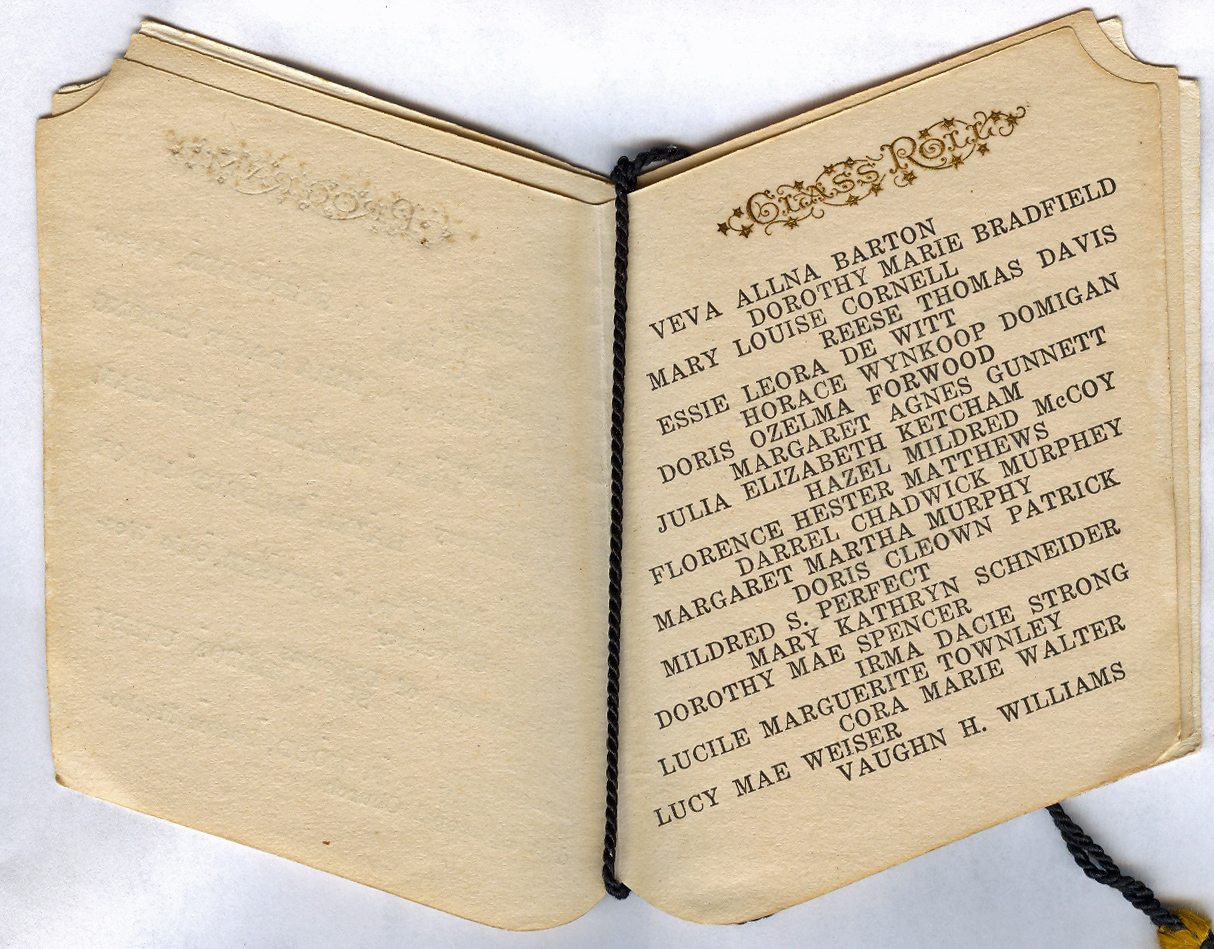 CLASS ROLL
VEVA ALLNA BARTON
DOROTHY MARIE BRADFIELD
MARY LOUISE CORNELL
REESE THOMAS DAVIS
ESSIE LEORA DE WITT
HORACE WYNKOOP DOMIGAN
DORIS OZELMA FORWOOD
MARGARET AGNES GUNNETT
JULIA ELIZABETH KETCHAM
HAZEL MILDRED McCOY
FLORENCE HESTER MATTHEWS
DARREL CHADWICK MURPHEY
MARGARET MARTHA MURPHY
DORIS CLEOWN PATRICK
MILDRED S. PERFECT
MARY KATHRYN SCHNEIDER
DOROTHY MAE SPENCER
IRMA DACIE STRONG
LUCILE MARGUERITE TOWNLEY
CORA MARIE WALTER
LUCY MAE WEISER
VAUGHN H. WILLIAMS